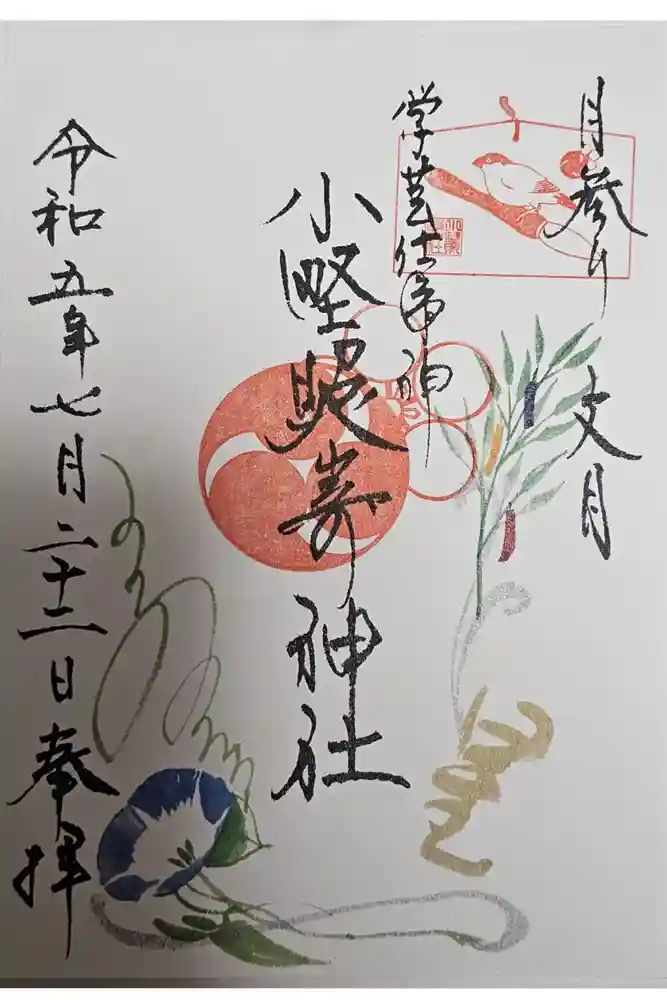 月参り 文月
学芸仕事神
小野照嵜神社
令和五年七月二十二日奉拝